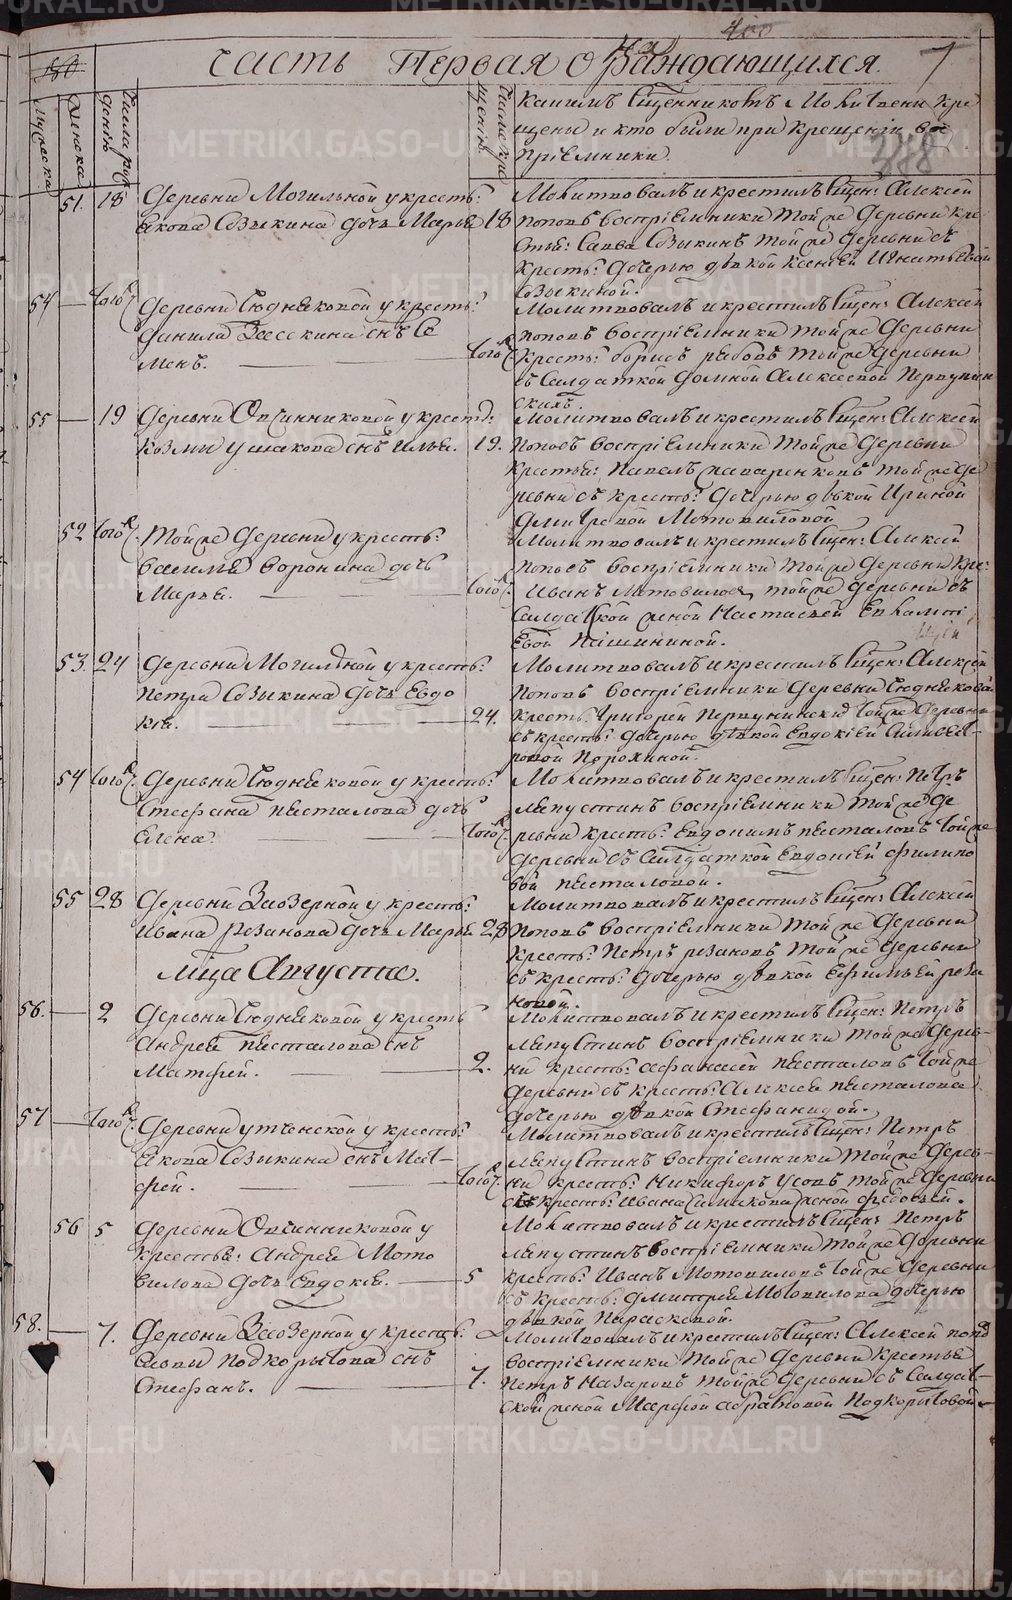 400
Часть Первая О раждающихся.
на
7
мужеска
женска
Числа рожденiя
Числа крещенiя
Какимъ Священникомъ Молитвены кре
щены и кто были при крещенiи во
прiемники.
388
51. 18 Деревни Могильной у кресть:
Якова Созыкина дочь Марья 18
Молитвовалъ и крестилъ Свщен: Алексей
Поповъ воспрiемники той же деревни кре
стья: Савва Созыкинъ той же деревни съ
кресть: дочерью девкой Ксенiей Игнатьевой
Созыкиной.
54 — того ч. Деревни Сюдняковой у кресть:
Данила сынъ Се
менъ. — того ч.
Молитвовалъ и крестилъ Свщен: Алексей
Поповъ воспрiемники той же деревни
кресть: Борисъ той же деревни
съ Салдаткой Домной Алексеевой Первушин
скихъ.
55 — 19 Деревни Овчинниковой у крестья:
Козмы Ушакова сынъ Илья. 19.
Молитвовалъ и крестилъ Свщен: Алексей
Поповъ воспрiемники той же деревни
крестья: Павелъ той же де
ревни съ кресть: дочерью девкой Ириной
Дмитревой Мотовиловой
52 того ч. Той же деревни у кресть:
Василья Воронина дочь
Марья. — того ч.
Молитвовалъ и крестилъ Свщен: Алексей
Поповъ воспрiемники той же деревни кре:
Иванъ Мотовиловъ, той же деревни съ
Салдатской женой Настасьей Евлампi
евой Пашниной.
53 24 Деревни Могильной у кресть:
Петра Созыкина дочь Евдо
кiя. — 24.
Молитвовалъ и крестилъ Свщен: Алексей
Поповъ воспрiемники деревни Сюдняковой
кресть: Григорей Первушинский той же деревни
съ кресть: дочерью девкой Евдокiей Силвест-
ровой Порохиной.
54 того ч. Деревни Сюдняковой у кресть:
Стефана Песталова дочь
Елена. — того ч.
Молитвовалъ и крестилъ Свщен: Петръ
Ляпустинъ воспрiемники той же де
ревни кресть: Евдокимъ Песталовъ той же
деревни съ Салдаткой Евдокiей Филипо
вой Песталовой.
55 28 Деревни Заозерной у кресть:
Ивана Резанова дочь Марья 28
Молитвовалъ и крестилъ Свщен: Алексей
Поповъ воспрiемники той же деревни
кресть: Петръ Резановъ той же деревни
съ кресть: дочерью девкой Ефимьей Реза
новой.
Мца Августа.
56. — 2 Деревни Сюдняковой у кресть
Андрея Песталова сынъ
Матфей. — 2.
Молитвовалъ и крестилъ Свщен: Петръ
Ляпустинъ воспрiемники той же дерев-
ни кресть: Афанасей Песталовъ той же
деревни съ кресть: Алексея Песталова
дочерью девкой Стефанидой.
57 — того ч. Деревни Утченской у кресть:
Якова Созыкина сынъ Мат-
фей. — того ч.
Молитвовалъ и крестилъ Свщен: Петръ
Ляпустинъ воспрiемники той же дерев-
ни кресть: Никифоръ Усовъ той же деревни
съ кресть: Ивана женой Федосьей.
56 5 Деревни Овчинниковой у
крестья: Андрея Мото
вилова дочь Евдокiя. — 5
Молитвовалъ и крестилъ Свщен: Петръ
Ляпустинъ воспрiемники той же деревни
кресть: Иванъ Мотовиловъ той же деревни
съ кресть: Дмитрея Мотовилова дочерью
девкой Парасковой.
58. — 7. Деревни Заозерной у кресть:
Саввы Подкорытова сынъ
Стефанъ. — 7.
Молитвовалъ и крестилъ Свщен: Алексей Поповъ
воспрiемники той же деревни крестья
Петръ Назаровъ той же деревни съ Салдат-
ской женой Марфой Подкорытовой